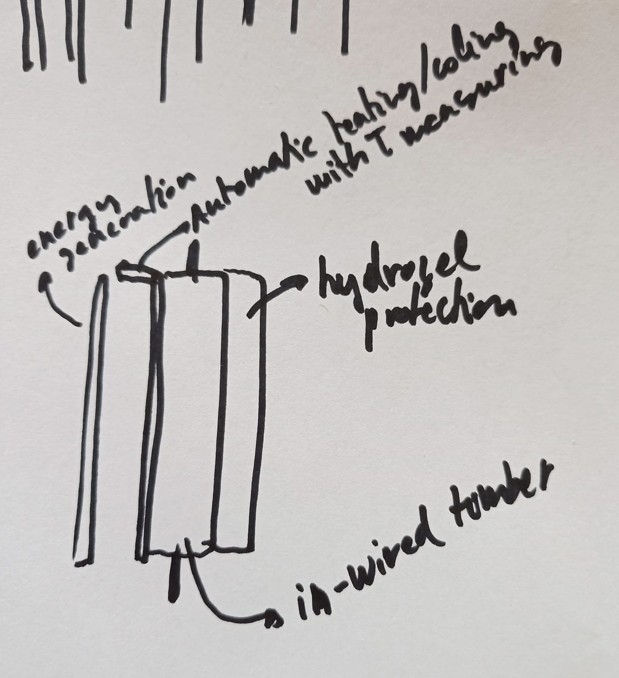 energy
generation
Automatic heating/coling
with T measuring
hydrogel
protection
in-wired tomber